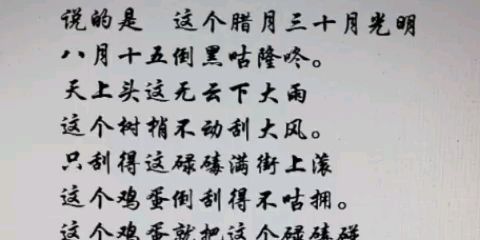 说的是 这个腊月三十月光明
八月十五倒黑咕隆咚。
天上头这无云下大雨
这个树梢不动刮大风。
只刮得这碌碡满街上滚
这个鸡蛋倒刮得不咕拥。
这个鸡蛋就把这个碌碡碰